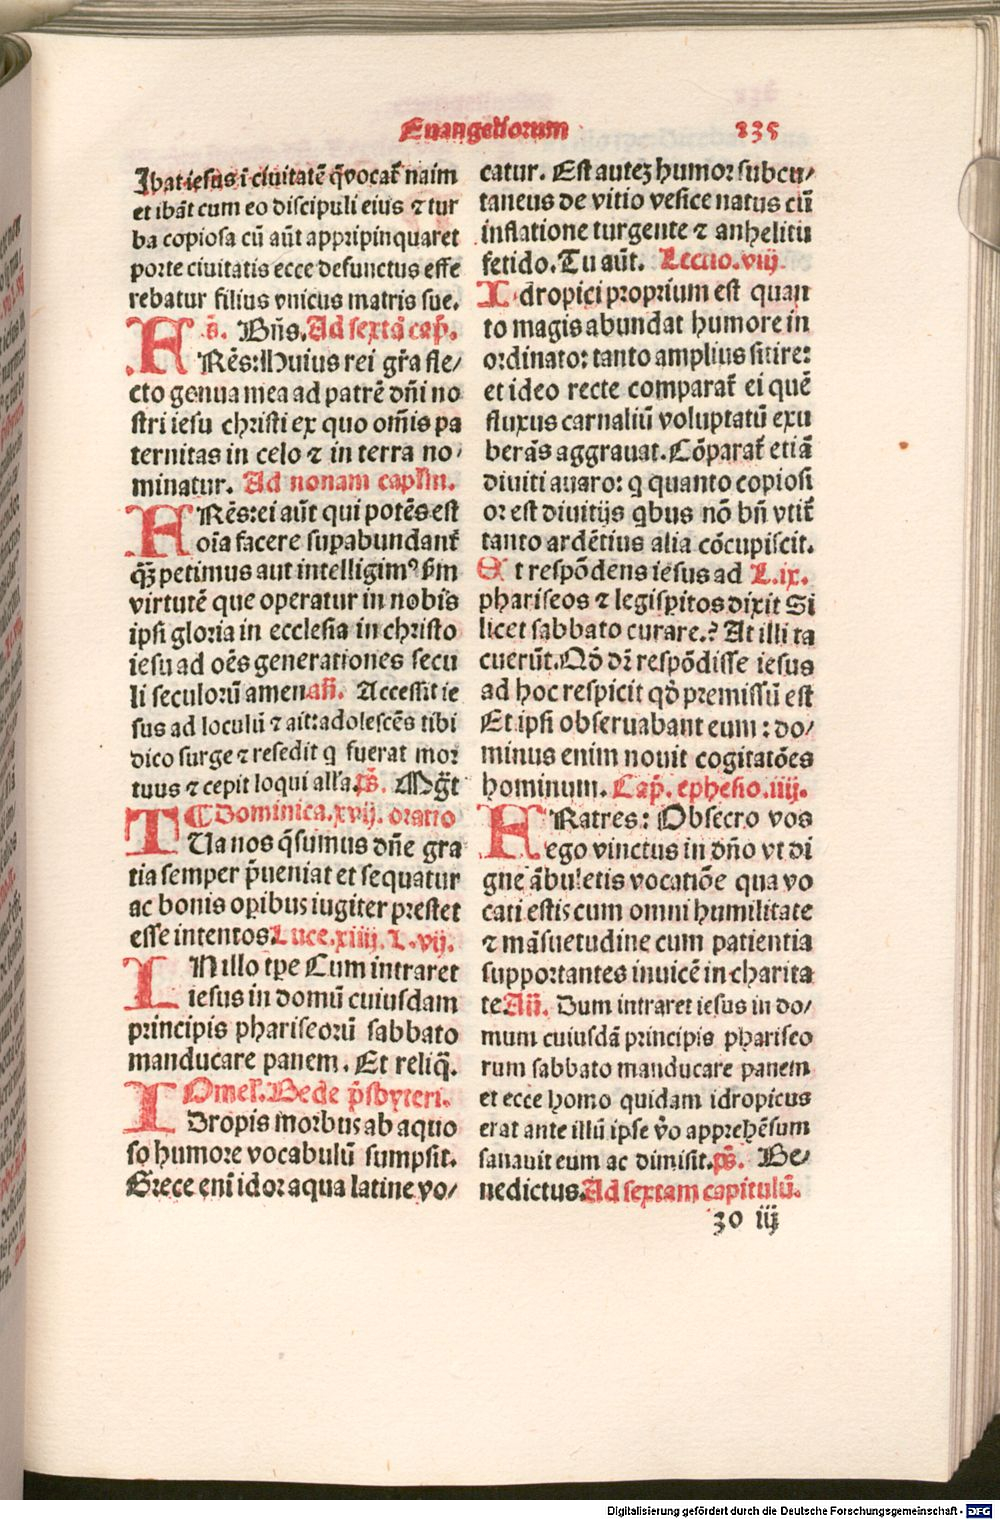 Euangeliorum
235
Ibat iesus ī ciuitatē q̄ vocat̄ naim
et ibāt cum eo discipuli eius ⁊ tur
ba copiosa cū aūt appripinquaret
porte ciuitatis ecce defunctus effe
rebatur filius vnicus matris sue.
p̄s. Bn̄s. Ad sextā cap̄.
FRēs: Huius rei gr̄a fle/
cto genua mea ad patrē dn̄i no
stri iesu christi ex quo om̄is pa
ternitas in celo ⁊ in terra no/
minatur. Ad nonam caplm̄.
FRēs: ei aūt qui potēs est
oīa facere supabundant̄
qꝫ petimus aut intelligimꝰ ẜm
virtutē que operatur in nobis
ipsi gloria in ecclesia in christo
iesu ad oēs generationes secu
li seculorū amen an̄. Accessit ie
sus ad loculū ⁊ ait: adolescēs tibi
dico surge ⁊ resedit q fuerat mor
tuus ⁊ cepit loqui alla. p̄s. Mgt̄
¶ Dominica. xvij. oratio
TUa nos q̄sumus dn̄e gra
tia semper p̄ueniat et sequatur
ac bonis opibus iugiter prestet
esse intentos. Luce. xiiij. L. vij.
IN illo tpe Cum intraret
iesus in domū cuiusdam
principis phariseorū sabbato
manducare panem. Et reliq̄.
Omel̄. Bede p̄sbyteri.
IDropis morbus ab aquo
so humore vocabulū sumpsit.
Grece enī idor aqua latine vo/
catur. Est autez humor subcu/
taneus de vitio vesice natus cū
inflatione turgente ⁊ anhelitu
fetido. Tu aūt. Lectio. viij
Idropici proprium est quan
to magis abundat humore in
ordinato: tanto amplius sitire:
et ideo recte comparat̄ ei quē
fluxus carnaliū voluptatū exu
berās aggrauat. Cōparat̄ etiā
diuiti auaro: q quanto copiosi
or est diuitijs qbus nō bn̄ vtit̄
tanto ardētius alia cōcupiscit.
Et respōdens iesus ad L. ix.
phariseos ⁊ legispitos dixit Si
licet sabbato curare.? At illi ta
cuerūt. Qd̄ dr̄ respōdisse iesus
ad hoc respicit qd̄ premissū est
Et ipsi obseruabant eum: do/
minus enim nouit cogitatōes
hominum. Cap̄. ephesio. iiij.
FRatres: Obsecro vos
ego vinctus in dn̄o vt di
gne ābuletis vocatiōe qua vo
cati estis cum omni humilitate
⁊ māsuetudine cum patientia
supportantes inuicē in charita
te An̄. Dum intraret iesus in do/
mum cuiusdā principis phariseo
rum sabbato manducare panem
et ecce homo quidam idropicus
erat ante illū ipse v̄o apprehēsum
sanauit eum ac dimisit. p̄s. Be/
nedictus. Ad sextam capitulū.
30 iij
Digitalisierung gefördert durch die Deutsche Forschungsgemeinschaft - DFG